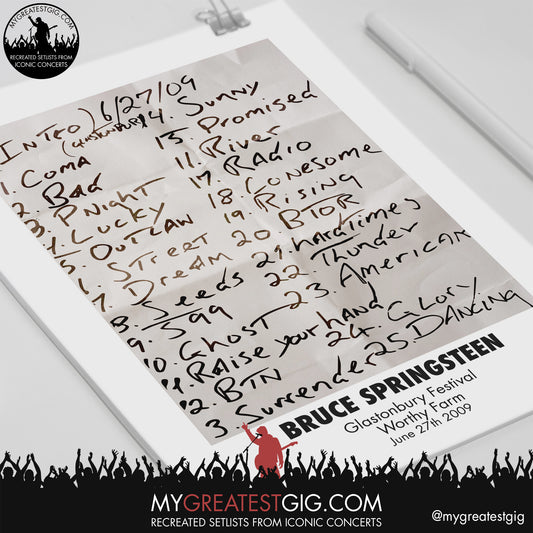 MYGREATESTGIG.COM
RECREATED SETLISTS FROM
ICONIC CONCERTS
INTRO) 6/27/09
(GLASTONBURY)
1. COMA
2. BAD
3. PNIGHT
4. LUCKY
5. OUTLAW
6. STREET
7. DREAM
8. Seeds
9. J99
10. GHOST
11. RAISE YOUR HAND
12. BTN
13. Surrender
14. SUNNY
15. PROMISED
16. RIVER
17. RADIO
18. LONESOME
19. RISING
20. BTOR
21. HARD TIMES
22. THUNDER
23. AMERICAN
24. GLORY
25. DANCING
BRUCE SPRINGSTEEN
Glastonbury Festival
Worthy Farm
June 27th 2009
MYGREATESTGIG.COM
RECREATED SETLISTS FROM ICONIC CONCERTS
@mygreatestgig